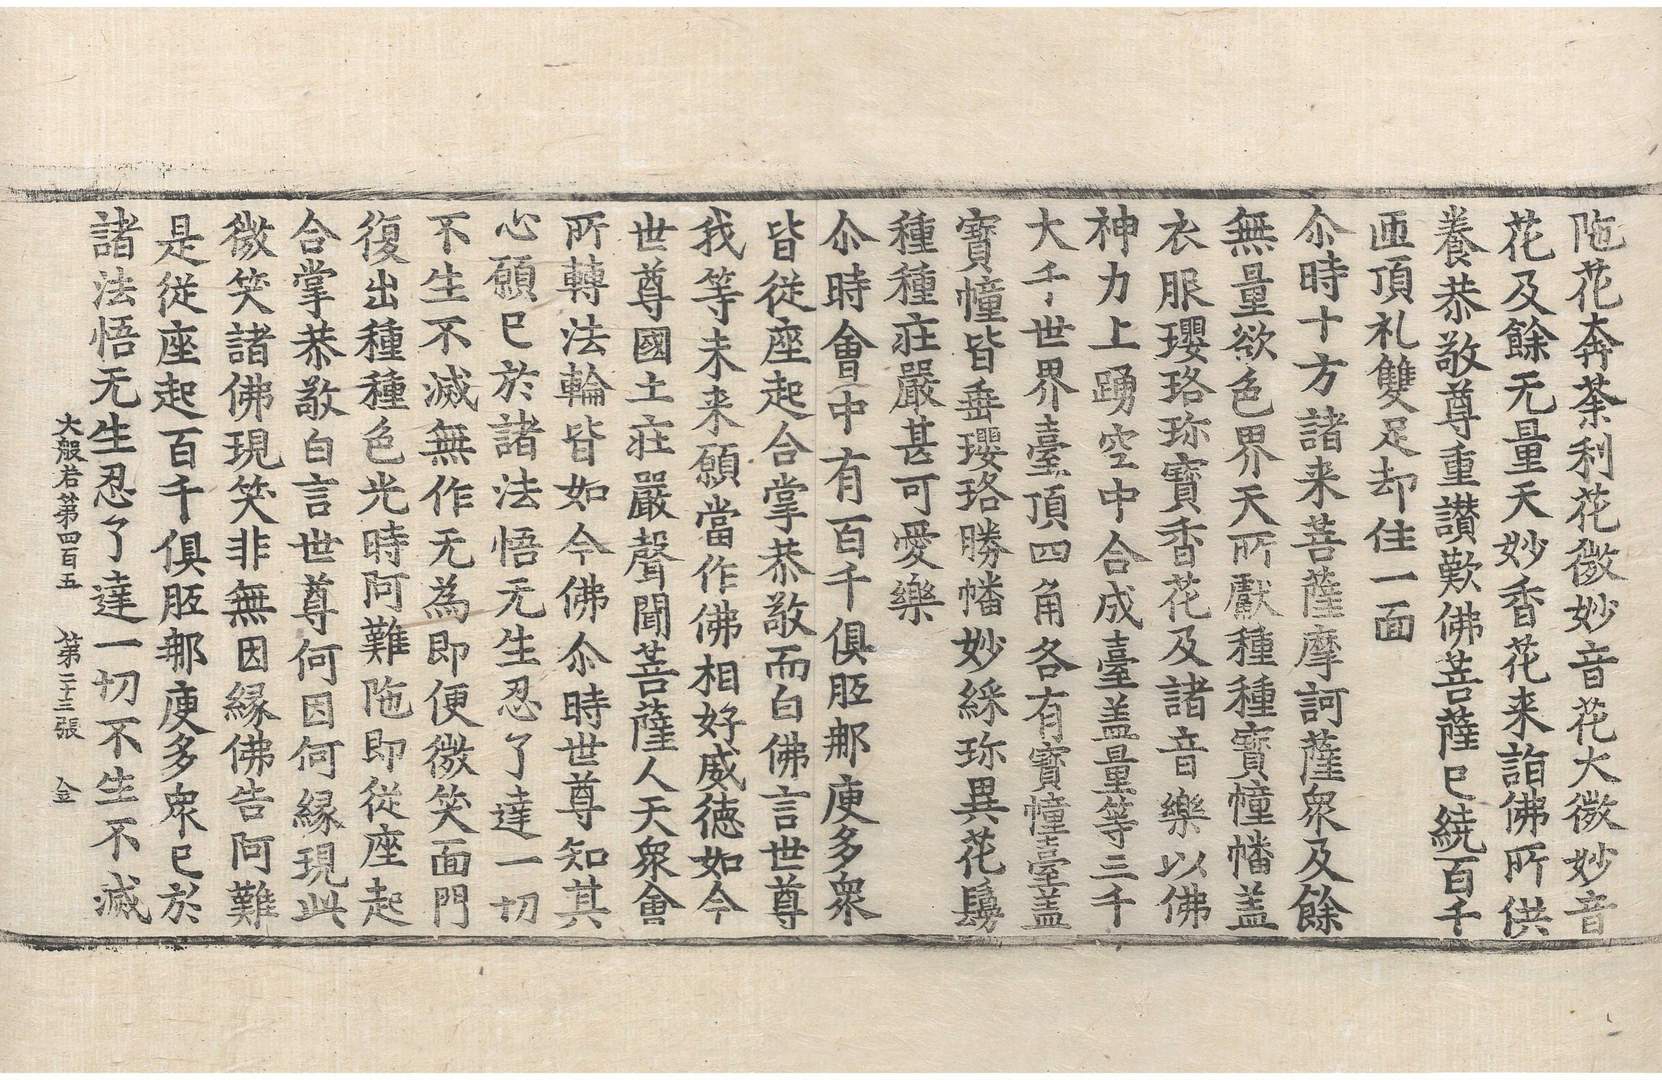 陁花奔荼利花微妙音花大微妙音
花及餘无量天妙香花来詣佛所供
養恭敬尊重讃歎佛菩薩已繞百千
匝頂礼雙足却住一面
尒時十方諸来菩薩摩訶薩衆及餘
無量欲色界天所獻種種寶幢幡盖
衣服瓔珞珎寶香花及諸音樂以佛
神力上踊空中合成臺盖量等三千
大千世界臺頂四角各有寶幢臺盖
寶幢皆垂瓔珞勝幡妙綵珎異花鬘
種種莊嚴甚可愛樂
尒時會中有百千俱胝那庾多衆
皆從座起合掌恭敬而白佛言世尊
我等未来願當作佛相好威德如今
世尊國土莊嚴聲聞菩薩人天衆會
所轉法輪皆如今佛尒時世尊知其
心願已於諸法悟无生忍了達一切
不生不滅無作无為即便微笑面門
復出種種色光時阿難陁即從座起
合掌恭敬白言世尊何因何縁現此
微笑諸佛現笑非無因縁佛告阿難
是從座起百千俱胝那庾多衆已於
諸法悟无生忍了達一切不生不滅
大般若第四百五 第二十三張 金